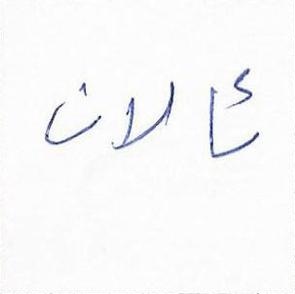 ئالان